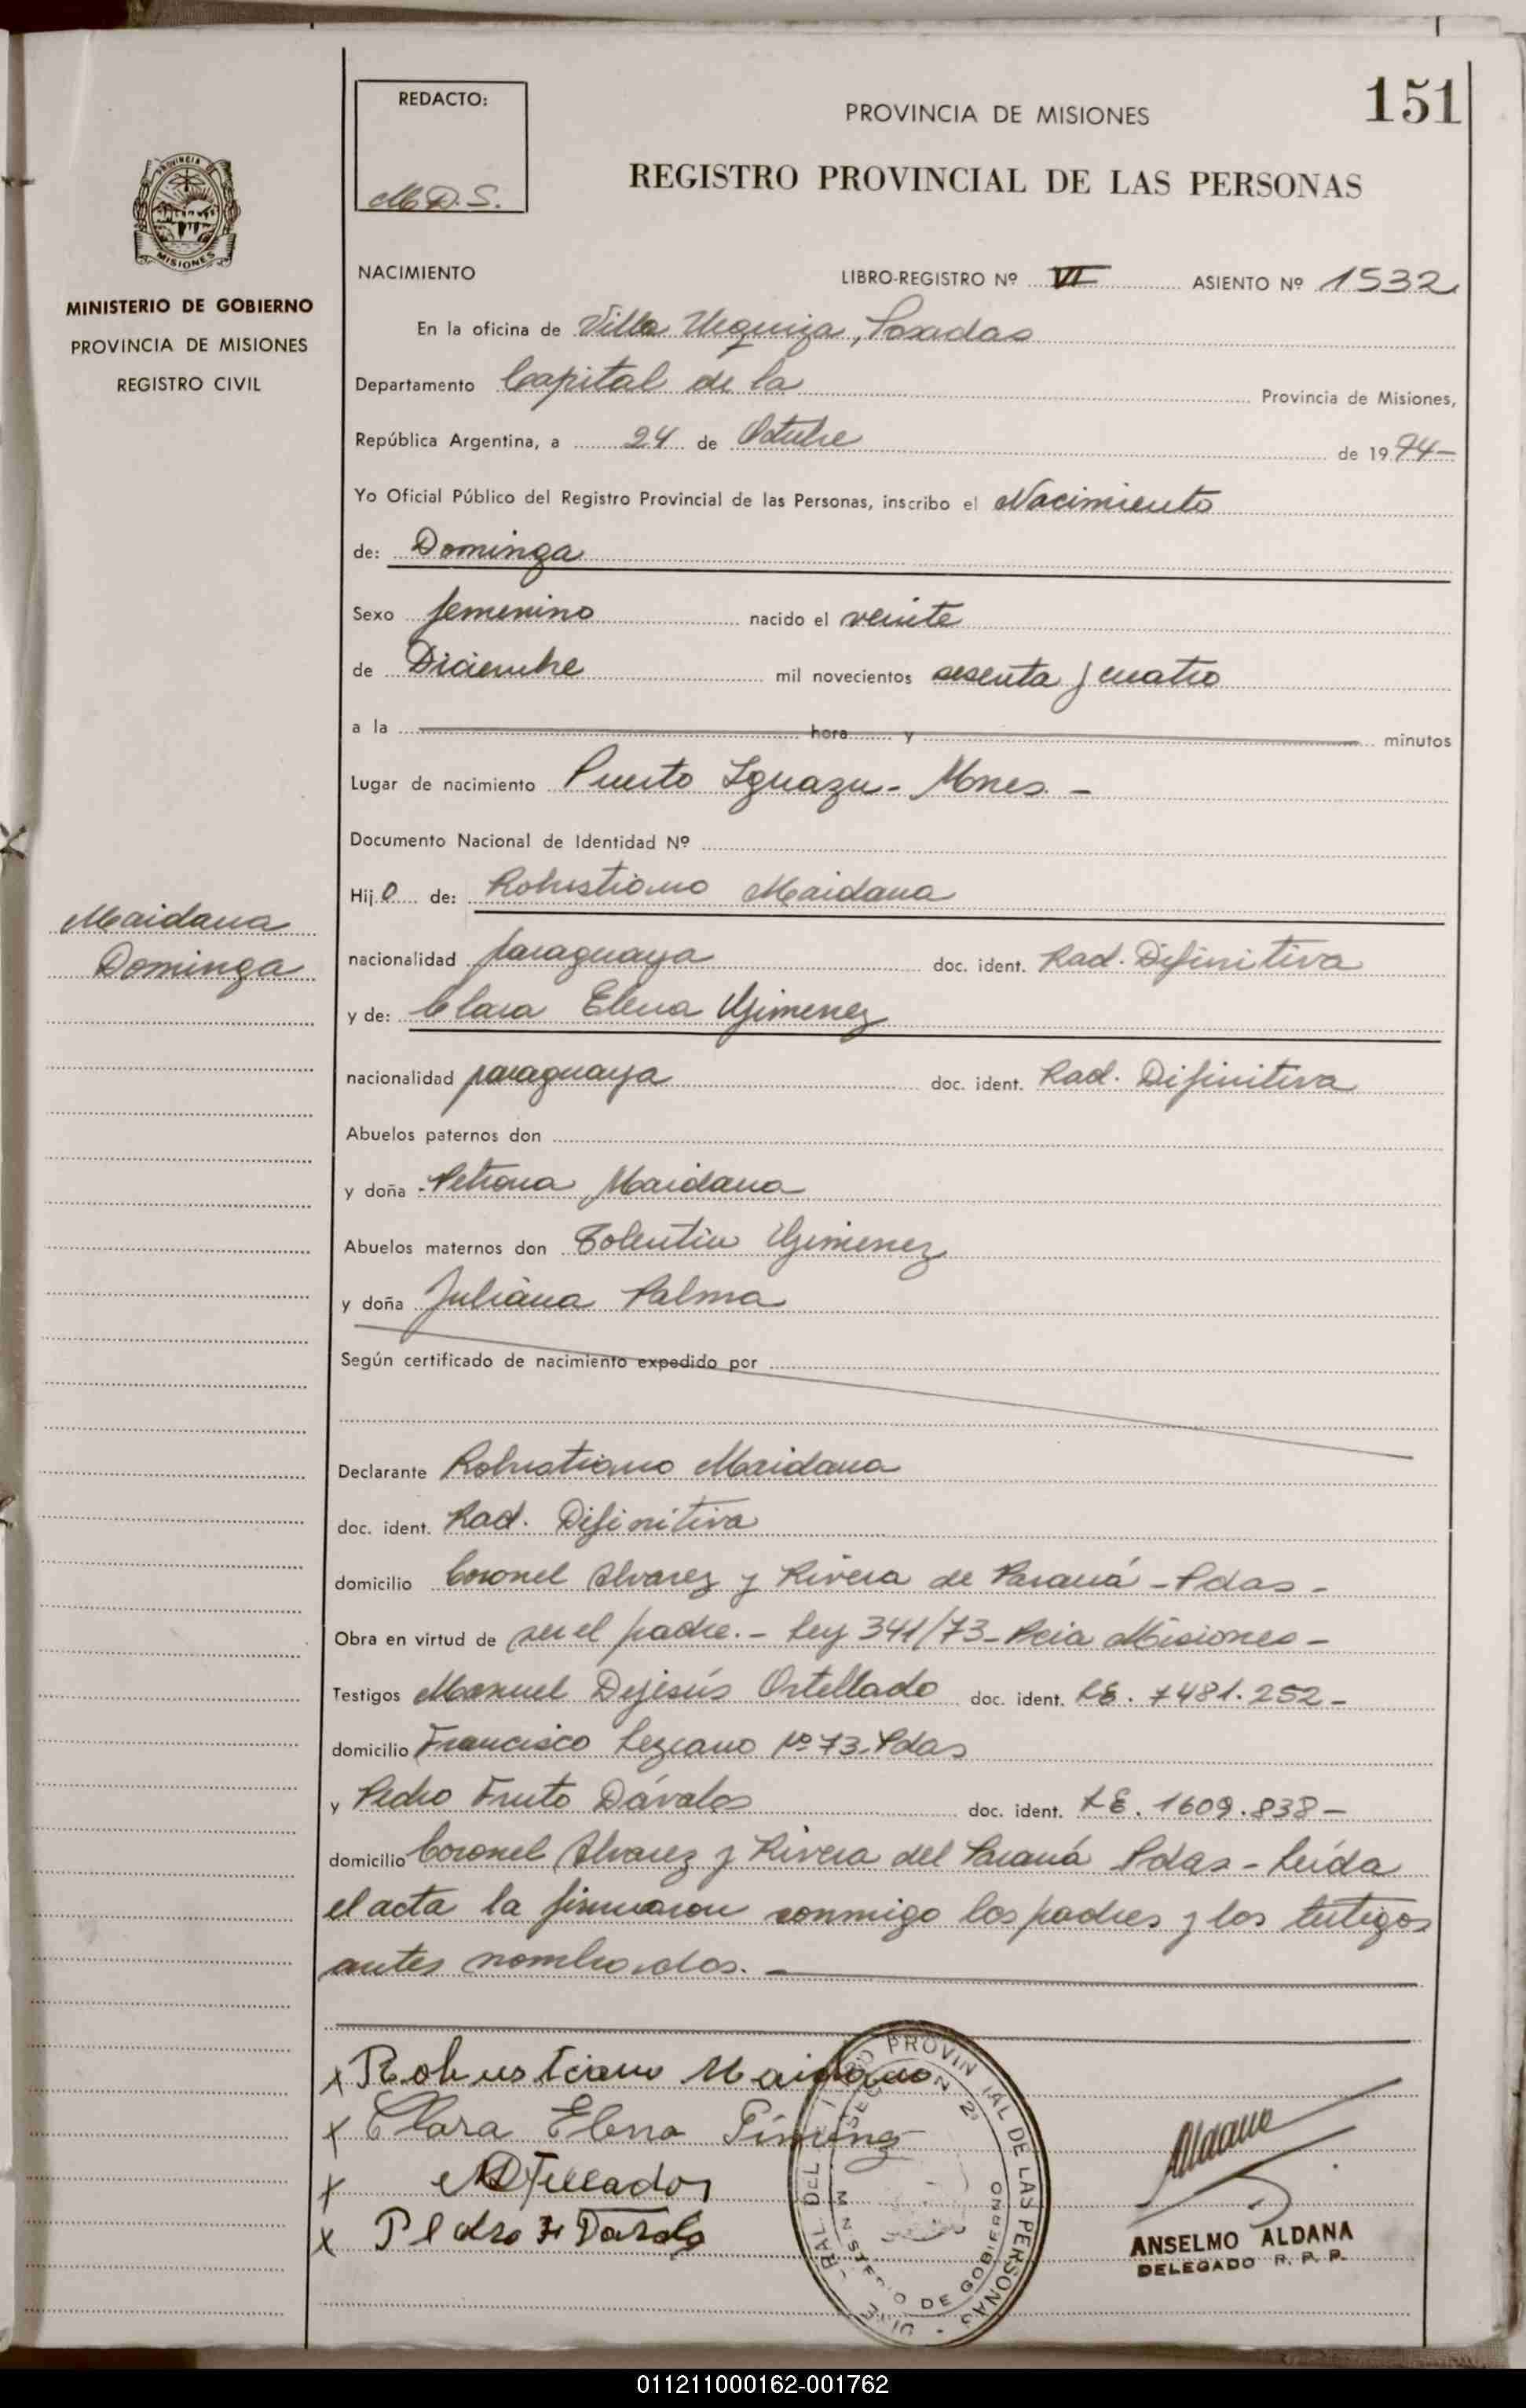 151
REDACTO:
M D. S.
PROVINCIA DE MISIONES
REGISTRO PROVINCIAL DE LAS PERSONAS
PROVINCIA DE
MISIONES
MINISTERIO DE GOBIERNO
PROVINCIA DE MISIONES
REGISTRO CIVIL
NACIMIENTO LIBRO-REGISTRO Nº VI ASIENTO Nº 1532
En la oficina de Villa Urquiza, Posadas
Departamento Capital de la Provincia de Misiones,
República Argentina, a 24 de Octubre de 1974-
Yo Oficial Público del Registro Provincial de las Personas, inscribo el Nacimiento
de: Dominga
Sexo femenino nacido el veinte
de Diciembre mil novecientos sesenta y cuatro
a la hora y minutos
Lugar de nacimiento Puerto Iguazu - Mnes. -
Documento Nacional de Identidad Nº
Hijo de: Robustiano Maidana
Maidana
Dominga
nacionalidad paraguaya doc. ident. Rad. Difinitiva
y de: Clara Elena Gimenez
nacionalidad paraguaya doc. ident. Rad. Difinitiva
Abuelos paternos don
y doña Petrona Maidana
Abuelos maternos don Tolentin Gimenez
y doña Juliana Palma
Según certificado de nacimiento expedido por
Declarante Robustiano Maridana
doc. ident. Rad. Difinitiva
domicilio Coronel Alvarez y Rivera de Paraná - Pdas -
Obra en virtud de ser el padre. - Ley 341/73 - Pcia Misiones -
Testigos Manuel Dejesús Ortellado doc. ident. LE. 7481.252 -
domicilio Francisco Lezcano Nº 73. Pdas
y Pedro Fruto Dávalos doc. ident. LE. 1609.838 -
domicilio Coronel Alvarez y Rivera del Paraná Pdas - Leída
el acta la firmaron conmigo los padres y los testigos
antes nombrados. -
x Robustiano Maidana
x Clara Elena
x
x Pedro F
PROVIN IAL DE LAS PERSONAS
MINISTERIO DE GOBIERNO
Aldana
ANSELMO ALDANA
DELEGADO R. P. P.
011211000162-001762